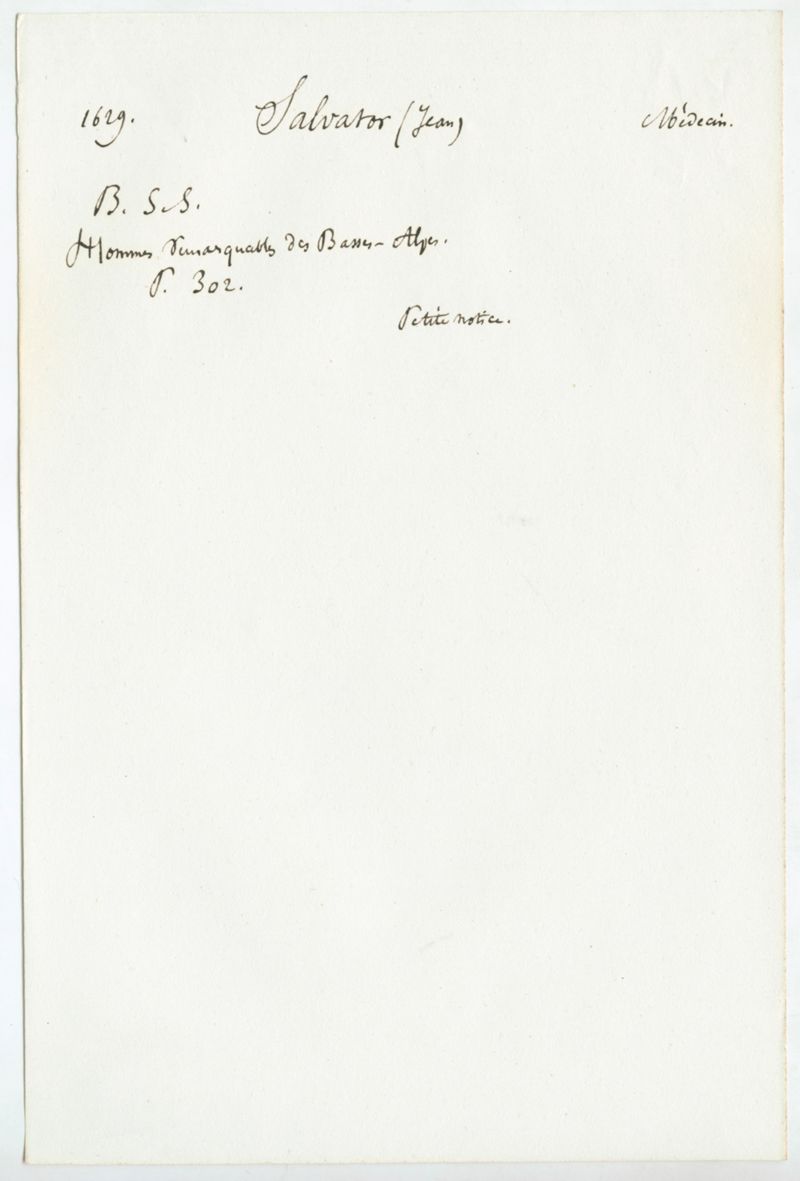 1629. Salvator (Jean) Médecin.
B. S. S.
Hommes remarquables des Basses-Alpes.
P. 302.
Petite notice.